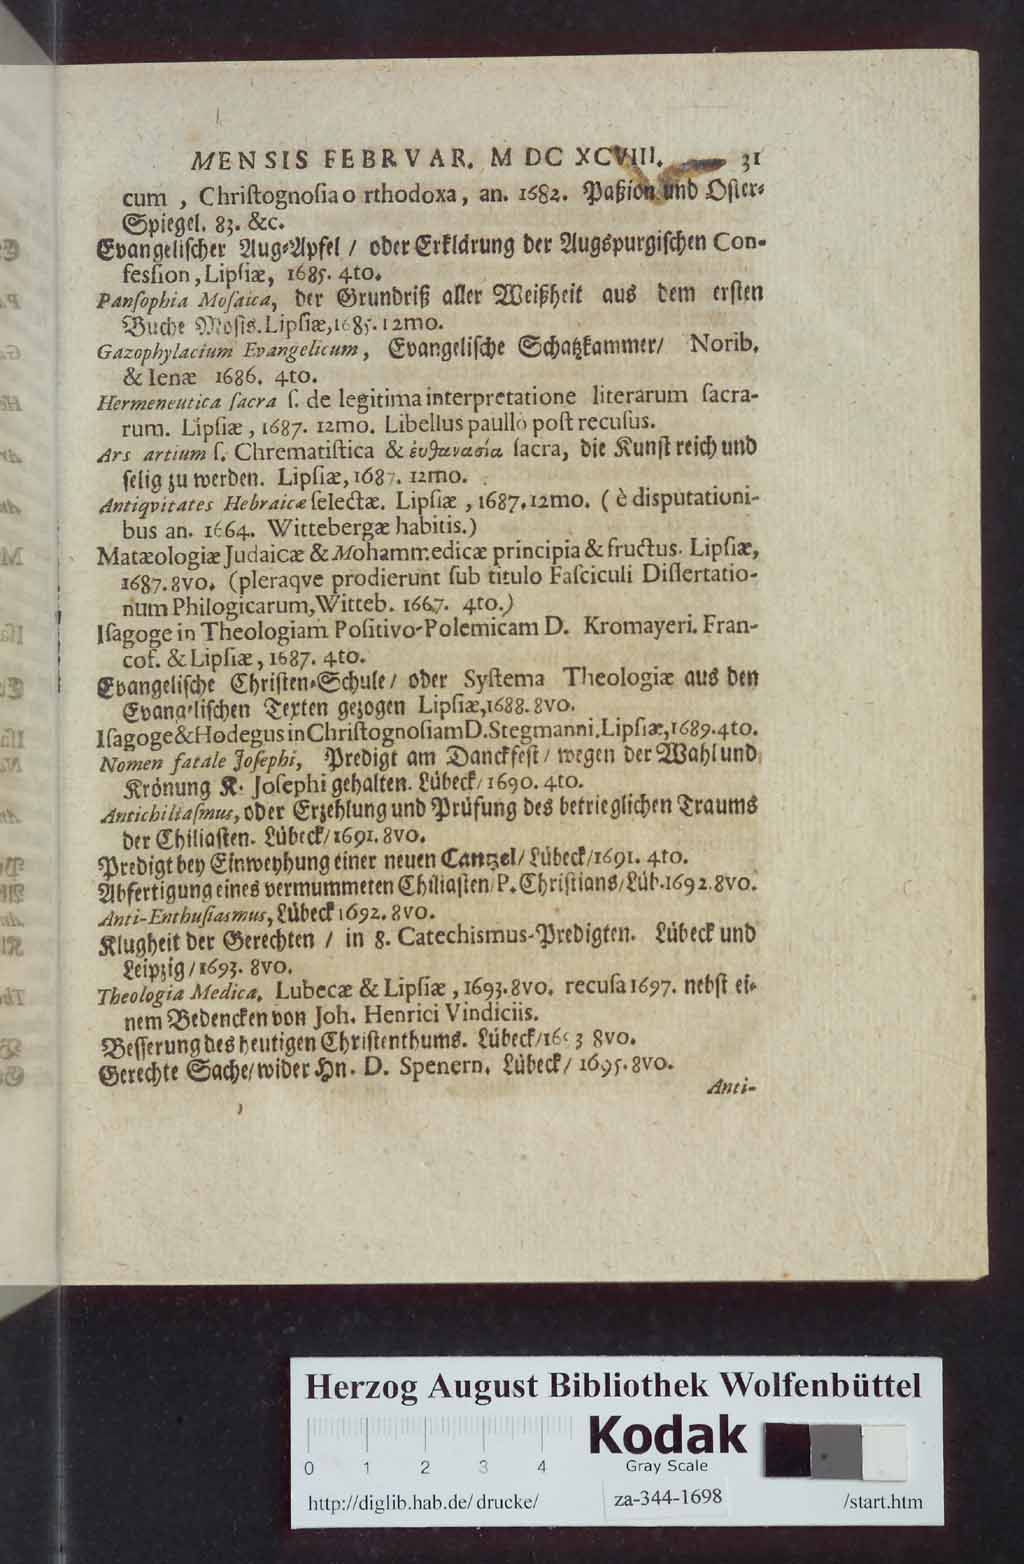 MENSIS FEBRVAR. M DC XCVIII. 31
cum , Chriſtognoſia o rthodoxa, an. 1682. Paßion und Oſter⸗
Spiegel. 83. &c.
Evangeliſcher Aug⸗Apfel / oder Erklärung der Augspurgiſchen Con-
feſſion, Lipſiæ, 1685. 4to.
Panſophia Moſaica, der Grundriß aller Weißheit aus dem erſten
Buche Moſis. Lipſiæ, 1685. 12mo.
Gazophylacium Evangelicum, Evangeliſche Schatzkammer/ Norib.
& Ienæ 1686. 4to.
Hermeneutica ſacra ſ. de legitima interpretatione literarum ſacra-
rum. Lipſiæ, 1687. 12mo. Libellus paullò poſt recuſus.
Ars artium ſ. Chrematiſtica & ἐυθανασία ſacra, die Kunſt reich und
ſelig zu werden. Lipſiæ, 1687. 12mo.
Antiqvitates Hebraicæ ſelectæ. Lipſiæ, 1687. 12mo. ( è disputationi-
bus an. 1664. Wittebergæ habitis.)
Matæologiæ Judaicæ & Mohammedicæ principia & fructus. Lipſiæ,
1687. 8vo. (pleraqve prodierunt ſub titulo Faſciculi Diſſertatio-
num Philogicarum, Witteb. 1667. 4to.)
Iſagoge in Theologiam Poſitivo-Polemicam D. Kromayeri. Fran-
cof. & Lipſiæ, 1687. 4to.
Evangeliſche Chriſten⸗Schule/ oder Syſtema Theologiæ aus den
Evangeliſchen Texten gezogen Lipſiæ, 1688. 8vo.
Iſagoge & Hodegus in Chriſtognoſiam D. Stegmanni. Lipſiæ, 1689. 4to.
Nomen fatale Joſephi, Predigt am Danckfeſt/ wegen der Wahl und
Krönung K. Joſephi gehalten. Lübeck/ 1690. 4to.
Antichiliaſmus, oder Erzehlung und Prüfung des betrieglichen Traums
der Chiliaſten. Lübeck/ 1691. 8vo.
Predigt bey Einweyhung einer neuen Cantzel/ Lübeck/ 1691. 4to.
Abfertigung eines vermummeten Chiliaſten/ P. Chriſtians/ Lüb. 1692. 8vo.
Anti-Enthuſiasmus, Lübeck 1692. 8vo.
Klugheit der Gerechten / in 8. Catechismus-Predigten. Lübeck und
Leipzig / 1693. 8vo.
Theologia Medica. Lubecæ & Lipſiæ, 1693. 8vo. recuſa 1697. nebſt ei⸗
nem Bedencken von Joh. Henrici Vindiciis.
Beſſerung des heutigen Chriſtenthums. Lübeck/ 8vo.
Gerechte Sache/ wider Hn. D. Spenern. Lübeck/ 1695. 8vo.
Anti-
Herzog August Bibliothek Wolfenbüttel
0 1 2 3 4
Kodak
Gray Scale
http://diglib.hab.de/drucke/ za-344-1698 /start.htm